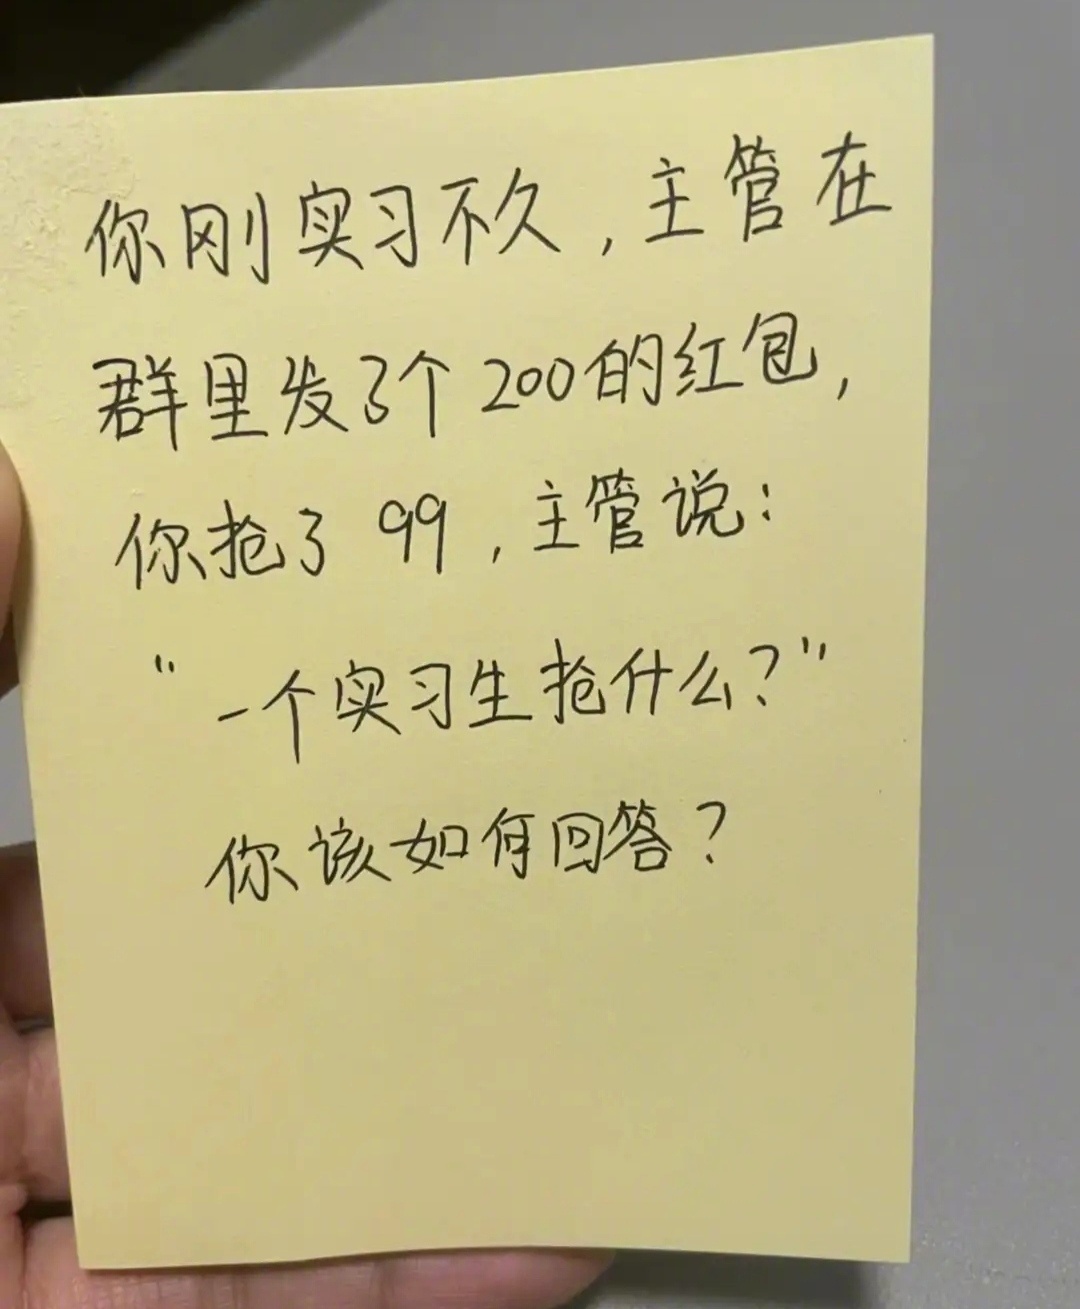 你刚实习不久，主管在
群里发了个200的红包，
你抢了99，主管说：
“一个实习生抢什么？”
你该如何回答？